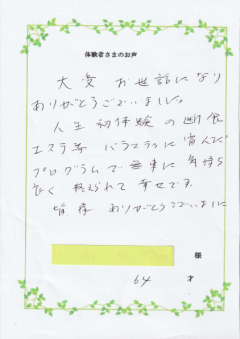 体験者さまのお声
大変 お世話になり
ありがとうございました。
人生 初体験の 断食
エステ等 バラエティに富んだ
プログラムで 無事に 気持ち
良く 終えられて 幸せです
皆様 ありがとうございました
様
64 才